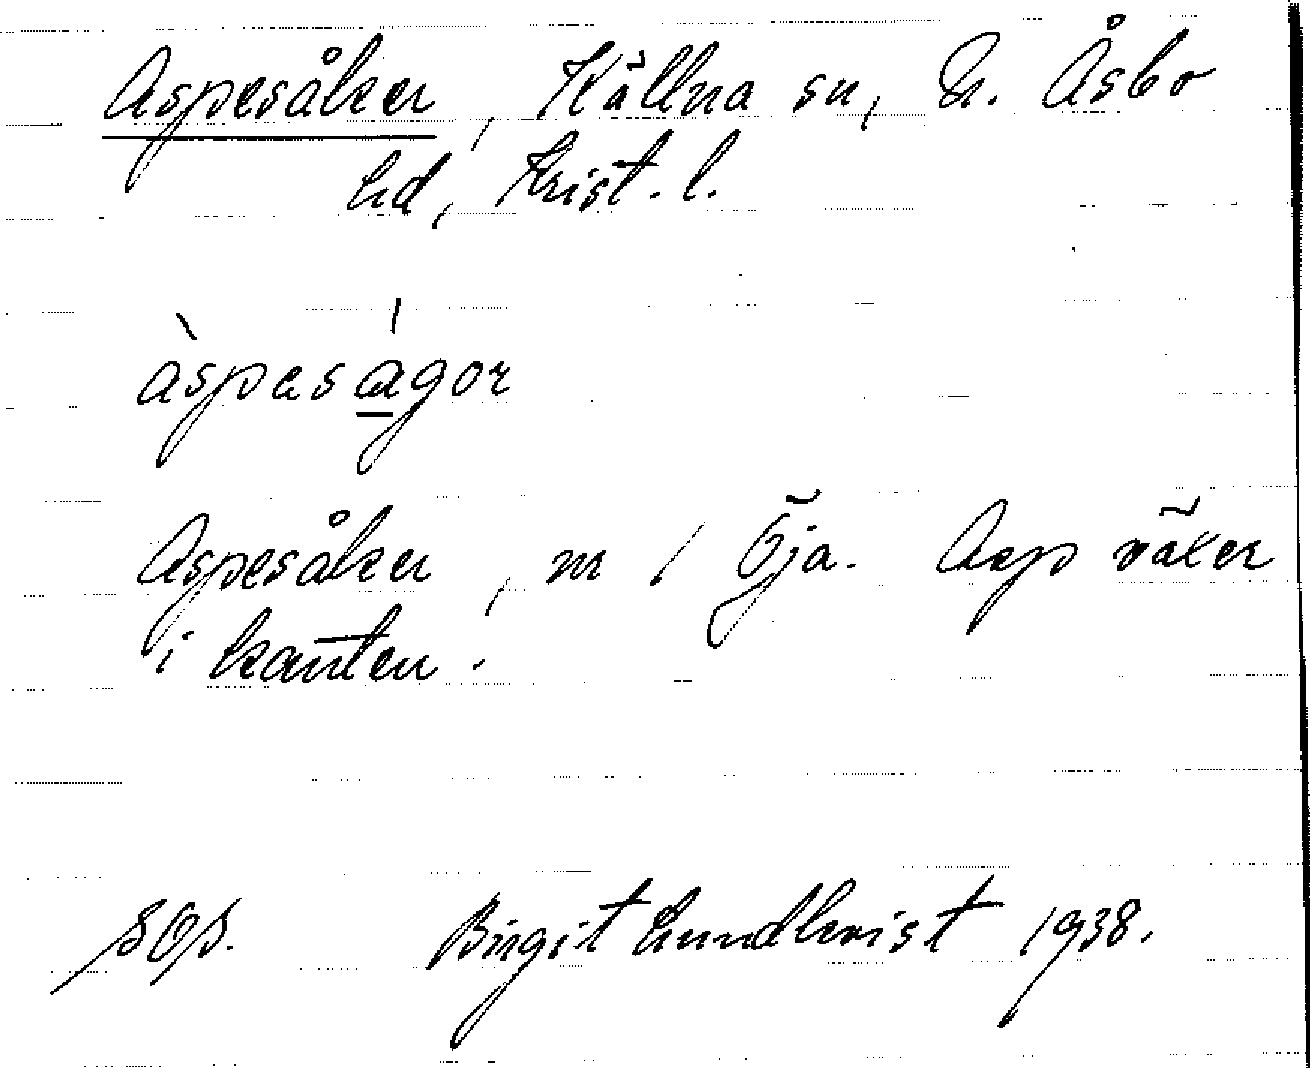 Aspesåker, Källna sn, N. Åsbo
hd, Krist. l.
àspeságor
Aspesåker, m / Öja. Asp växer
i kanten.
Birgit Lundkvist 1938.